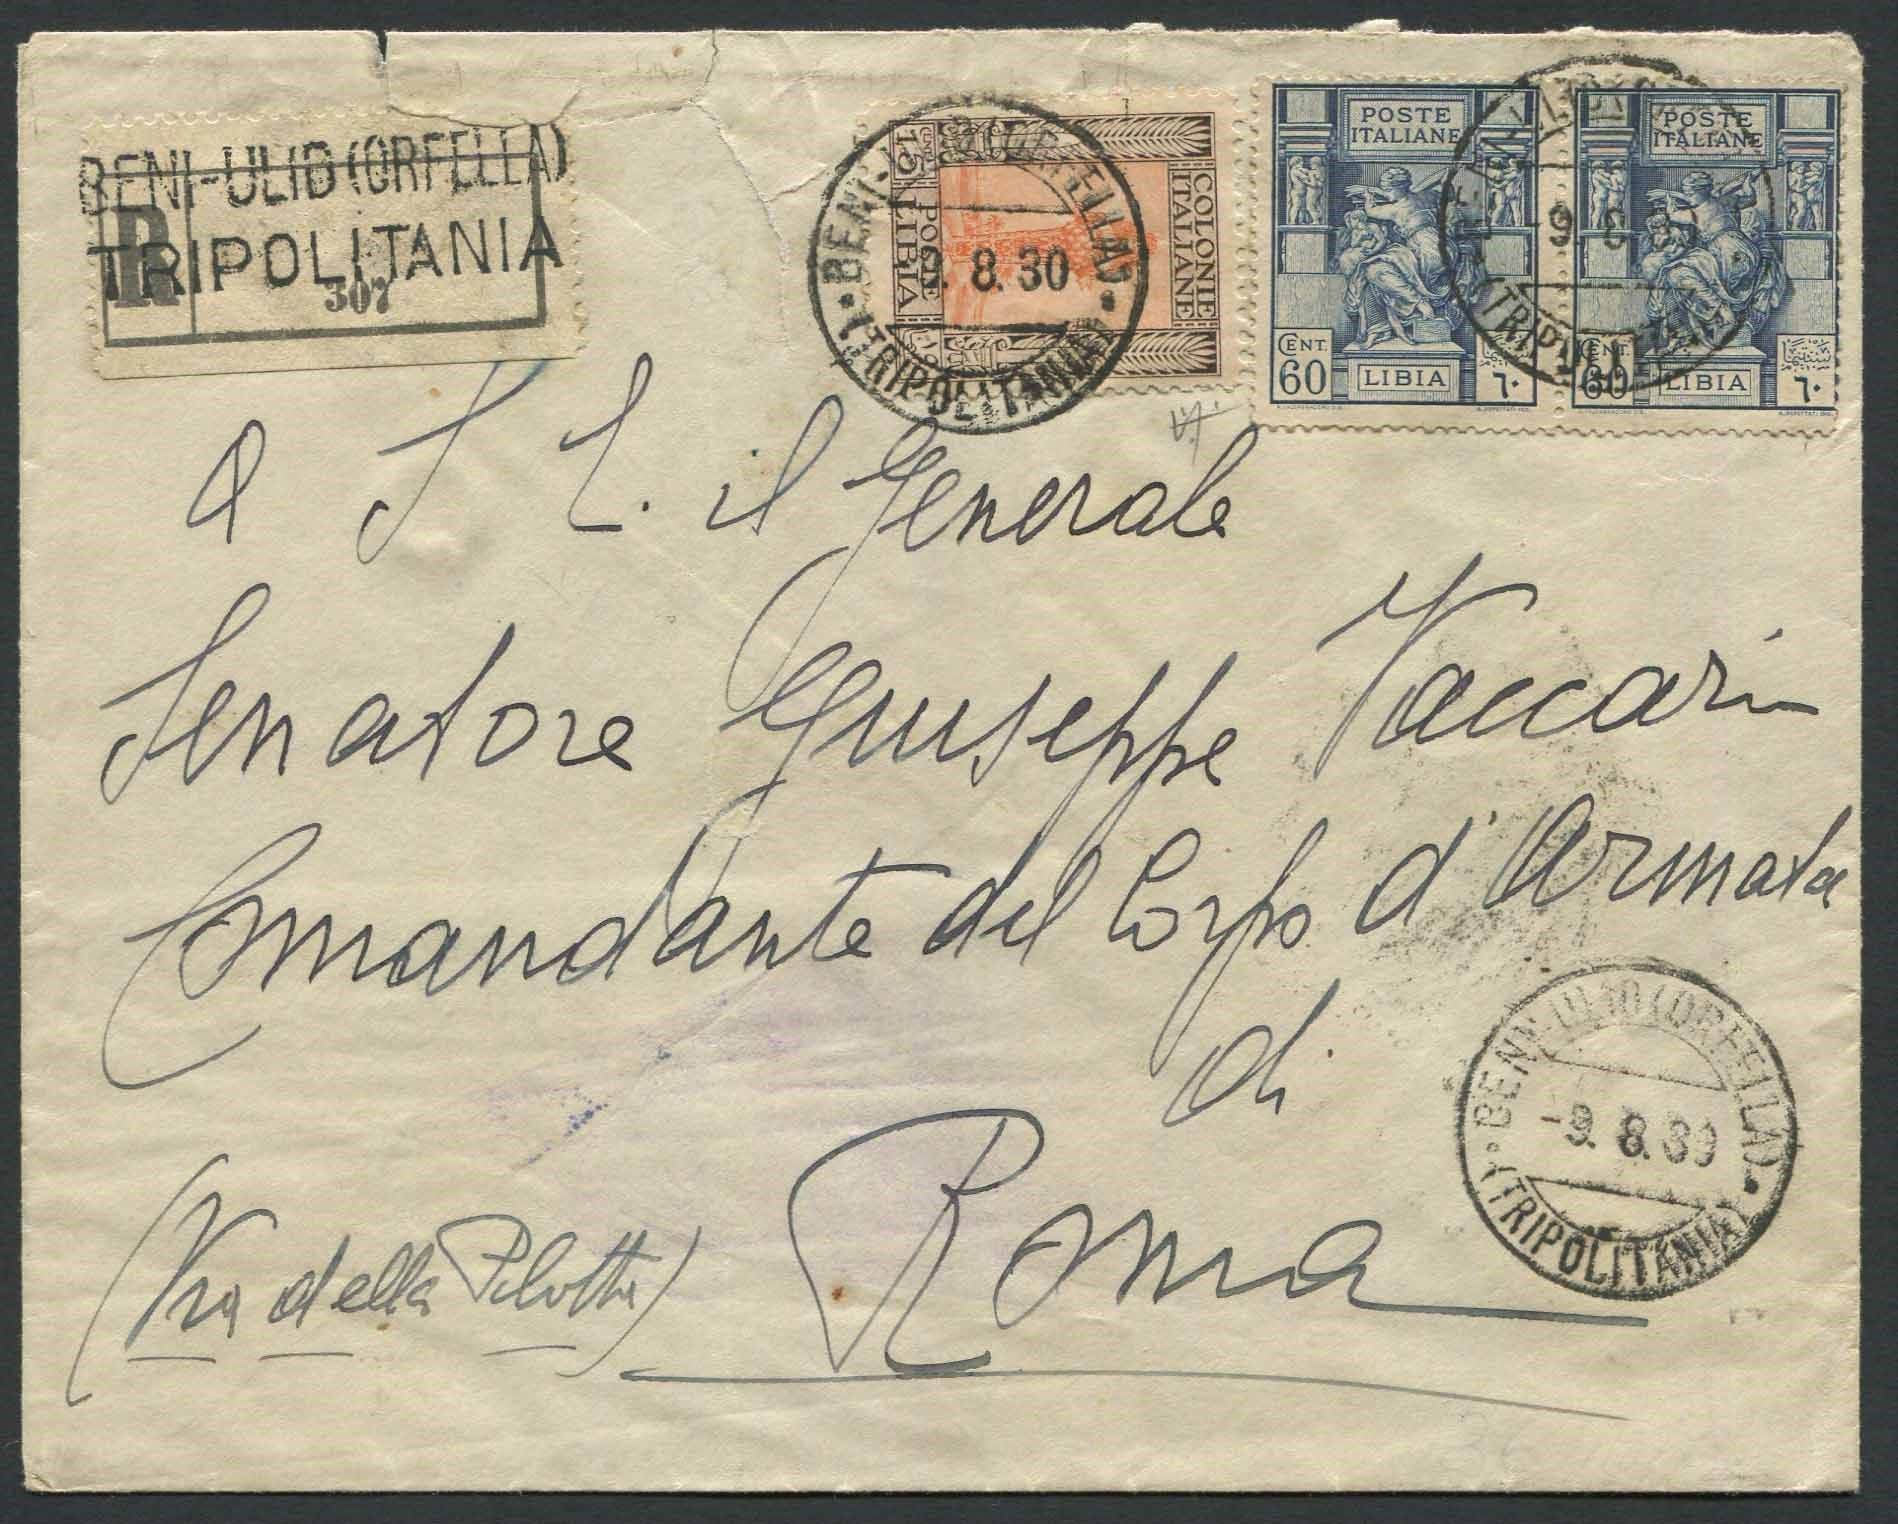 BENI-ULID (ORFELLA)
TRIPOLITANIA
R
307
COLONIE
ITALIANE
15 CENT.
POSTE
LIBIA
BENI-ULID (ORFELLA)
9. 8. 30
(TRIPOLITANIA)
POSTE
ITALIANE
CENT.
60
LIBIA
٦٠
POSTE
ITALIANE
CENT.
60
LIBIA
٦٠
-9. 8.
(TRIPOLITANIA)
A S. E. il Generale
Senatore Giuseppe Vaccari
Comandante del Corpo d'Armata
di
Roma
(Via della Pilotta)
BENI-ULID (ORFELLA)
-9. 8. 30
(TRIPOLITANIA)